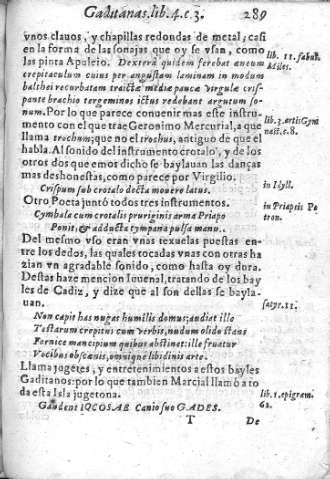 Gaditanas. lib. 4. c. 3. 289
vnos clauos, y chapillas redondas de metal; casi
en la forma de las sonajas que oy se vsan, como
las pinta Apuleio. Dexterâ quidem ferebat aneum
crepitaculum cuius per angustam laminam in modum
balthei recurbatam traictæ mediæ paucæ virgulæ cris-
pante brachio tergeminos ictus redebant argutum so-
num. Por lo que parece conuenir mas este instru-
mento con el que trae Geronimo Mercurial, a que
llama trochum; que no el trochus, antiguo de que el
habla. Al sonido del instrumento crotalo, y de los
otros dos que emos dicho se baylauan las danças
mas deshonestas, como parece por Virgilio.
Crispum sub crotalo docta mouere latus.
Otro Poeta juntô todos tres instrumentos.
Cymbala cum crotalis pruriginis arma Priapo
Ponit, & adducta tympana pulsa manu.
Del mesmo vso eran vnas texuelas puestas en-
tre los dedos, las quales tocadas vnas con otras ha
zian vn agradable sonido, como hasta oy dura.
Destas haze mencion Iuuenal, tratando de los bay
les de Cadiz, y dize que al son dellas se bayla-
uan.
Non capit has nugas humilis domus; audiat ille
Testarum crepitus cum verbis, nudum olido stans
Fornice mancipium quibus abstinet: ille fruatur
Vocibus obscænis, omnique libidinis arte.
Llama jugetes, y entretenimientos a estos bayles
Gaditanos: por lo que tambien Marcial llamô a to
da esta Isla jugetona.
Gaudent IOCOSAE Canio suo GADES.
T De
lib. 11. fabul.
Miles.
lib. 3. artis Gym
nast. c. 8.
in Idyll.
in Priapeis Pe
tron.
satyr. 11.
lib. 1. epigram.
62.